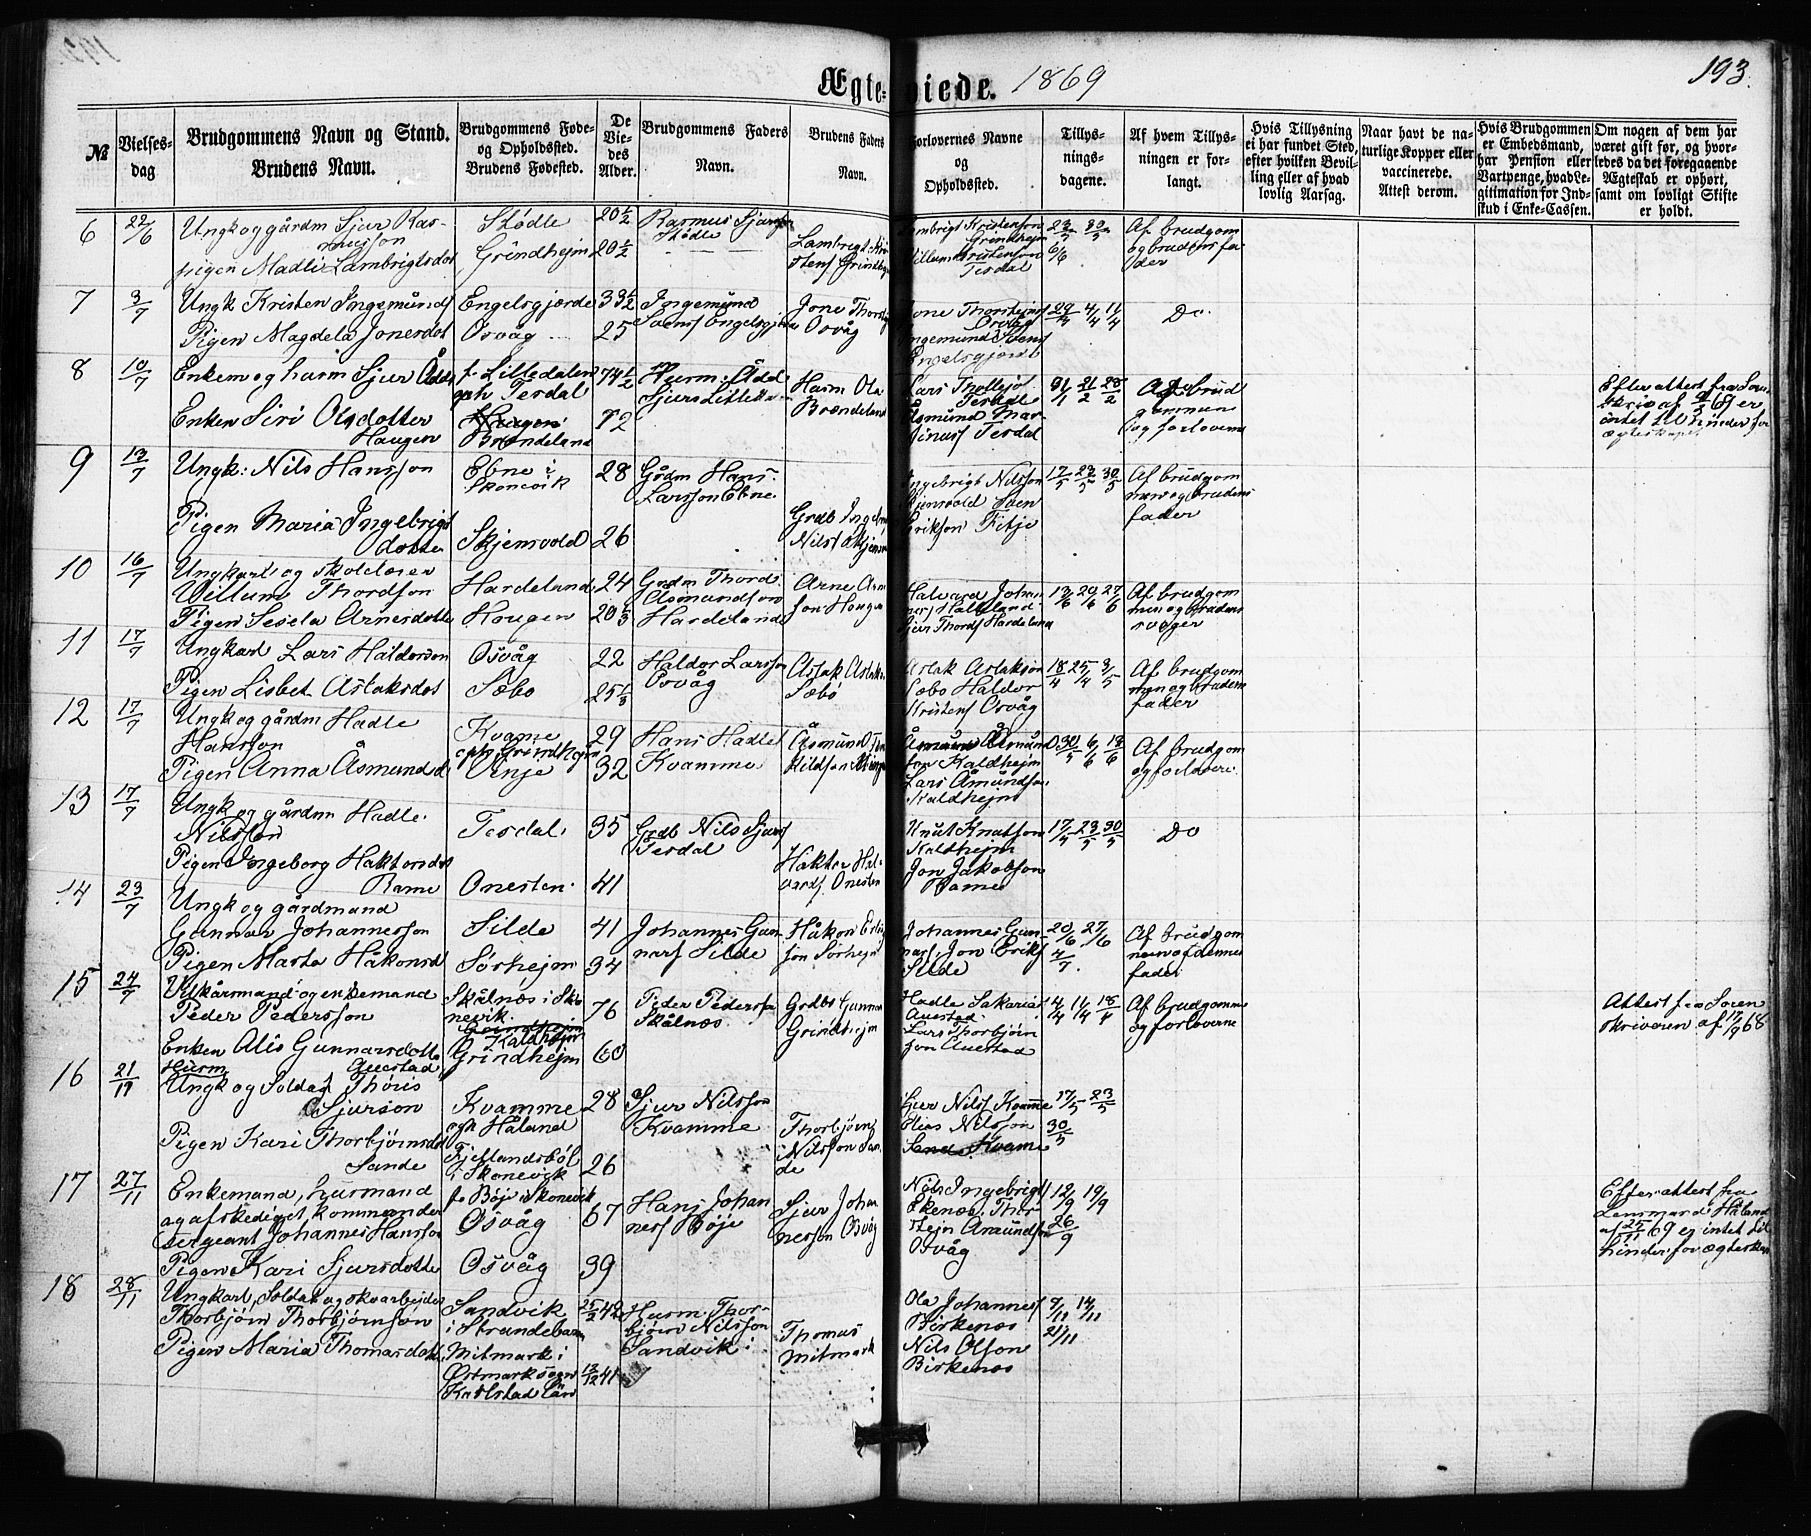 193.
Ægte-viede. 1869
№
Vielses-
dag
Brudgommens Navn og Stand.
Brudens Navn.
Brudgommens Føde-
og Opholdssted.
Brudens Fødested.
De
Vie-
des
Alder.
Brudgommens Faders
Navn.
Brudens Faders
Navn.
Forlovernes Navne
og
Opholdssted.
Tillys-
nings-
dagene.
Af hvem Tillys-
ningen er for-
langt.
Hvis Tillysning
ei har fundet Sted,
efter hvilken Bevil-
ling eller af hvad
lovlig Aarsag.
Naar havt de na-
turlige Kopper eller
vaccinerede.
Attest derom.
Hvis Brudgommen
er Embedsmand,
har Pension eller
Vartpenge, hvad Le-
gitimation for Ind-
skud i Enke-Cassen.
Om nogen af dem har
været gift før, og hvor-
ledes da det foregaaende
Ægteskab er ophørt,
samt om lovligt Skifte
er holdt.
6 22/6 Ungk og gårdm Sjur Ras-
musson
pigen Madli Lambrigtsdot
Stødle
Grindhejm
20 1/2
20 1/2
Rasmus Sjurson
Stødle
Lambrigt Kri-
stens Grindhejm
Lambrigt Kristenson
Grindhejm
Villum Kristenson
Tesdal
23/5 30/5
6/6
Af brudgom
og brudens fa
der
7 3/7 Ungk Kristen Ingemunds
Pigen Magdela Jonesdot
Engelsgjerde
Osvåg
33 1/2
25
Ingemund
Svens Engelsgjerde
Jone Thorstejns
Osvåg
Jone Thorstejns
Osvåg
Ingemund Svens
Engelsgjerde
29/4 4/4 11/4
Do
8 10/7 Enkem og husm Sjur Ådds
Enken Siri Olsdotter
Haugen
f. Litledalen
oph Tesdal
Haugen
Brændeland
74 1/2
72
Husm. Ådd
Sjurs Litleda
Husm Ola
Brændeland
Lars Thollejs
Tesdal
Åsmund Mar-
tinus Tesdal
31/1 21/2 28/2
Af brud
gommen
og forloverne
Efter attest fra Soren
skriv af 69 er
intet til hinder for
ægteskapet
9 13/7 Ungk: Nils Hansson
Pigen Maria Ingebrigts
dotter
Ebne i
Skonevik
Skjensvold
28
26
Gårdm Hans
Larsson Ebne
Grdb Ingebr
Nils Skjensv
Ingebrigt Nilsson
Skjensvold Sven
Erikson Fitje
17/5 23/5 30/5
Af brudgom
men og brudens
fader
10 16/7 Ungkarl og skolelærer
Villum Thordson
Pigen Sesela Arnesdotter
Hardeland
Hougen
24
20 1/3
Grdm Thord
Asmundson
Hardeland
Arne Arn
son Hougen
Halvard Johan
nes Halleland
Sjur Thords Hardeland
13/6 20/6 27/6
Af brudgom
men og brudens
svoger
11 17/7 Ungkarl Lars Haldorson
Pigen Lisbet Aslaksdot
Osvåg
Sæbo
22
25 1/3
Haldor Larsson
Osvåg
Aslak Aslaks
Sæbö
Aslak Aslakson
Sæbo Haldor
Kristens Osvåg
18/4 25/4 2/5
Af brudgom
men og brudens
fader
12 17/7 Ungk og gårdm Hadle
Hansson
Pigen Anna Åsmundsd
Kvame
oph Grindhejm
Ænje
29
32
Hans Hadles
Kvamme
Åsmund Ten
Åsmund Åsmund
son Kaldhejm
Lars Åmundson
Kaldhejm
30/5 6/6 13/6
Af brudgom
og forlovere
13 17/7 Ungk og gårdm Hadle
Nilsson
Pigen Ingeborg Haktorsdot
Rame
Tesdal
Onesten
35
41
Grdb Nils Sjurs
Tesdal
Haktor Hal-
vards. Onesten
Knut Knutson
Kaldhejm
Jon Jakobson
Rame
17/5 23/5 30/5
Do
14 23/7 Ungk og gårdmand
Gunnar Johannesson
Pigen Marta Håkonsd
Silde
Sørhejm
41
34
Johannes Gun-
nars Silde
Håkon Erlin
son Sørhejm
Johannes Gun-
nars, Jon Eriks
Silde
20/6 27/6
4/7.
Af brudgom
men og dennes
fader
15 24/7 Vilkårsmand og enkemand
Peder Pedersson
Enken Alis Gunnarsdotte
Auestad
Skålnæs i Sko
nevik
Grindhejm
Kaldhejm
Grindhejm
76
60
Peder Pedersson
Skålnæs
Grdbr Gunnar
Grindhejm
Hadle Sakarias
Auestad
Lars Thorbjörn
son Auestad
4/4 11/4 18/4
Af brudgomme
og forloverne
Attest fra Soren
skriveren af 17/9 68
16 21/11 Husm
Ungk og Soldat Thøris
Sjurson
Pigen Kari Thorbjörnsdot
Sande
Kvamme
oph Håland
Fjellandsböl
i Skonevik
28
26
Sjur Nilsson
Kvamme
Thorbjörn
Nilsson San
de
Sjur Nils Kvame
Elias Nilsson
Sande Kvame
17/5 23/5
30/5
17 27/11 Enkemand, husmand
og afskediget kommander
sergeant Johannes Hansson
Pigen Kari Sjursdotte
f. Böje i Skonevik
Osvåg
Osvåg
67
39
Hans Johan
nes Böje
Sjur Johan
nesson Osvåg
Nils Ingebrigt
Ekenæs Thor
stejn Amunds
Osvåg
12/9 19/9
26/9
Efter attest fra
Lensmand Håland
af 25/11 69 er intet til
hinder for ægteskap
18 28/11 Ungkarl, Soldat og skovarbejder
Thorbjörn Thorbjörnson
Pigen Maria Thomasdot
Sandvik
i Strandebarm
Mitmark i
Østmark sogn
Karlstad län
25/2 42
13/12 41
Husm. Thor-
björn Nilsson
Sandvik
Thomas
Mitmark
Ola Johannes
Birkenæs
Nils Olson
Birkenæs
7/11 14/11
21/11